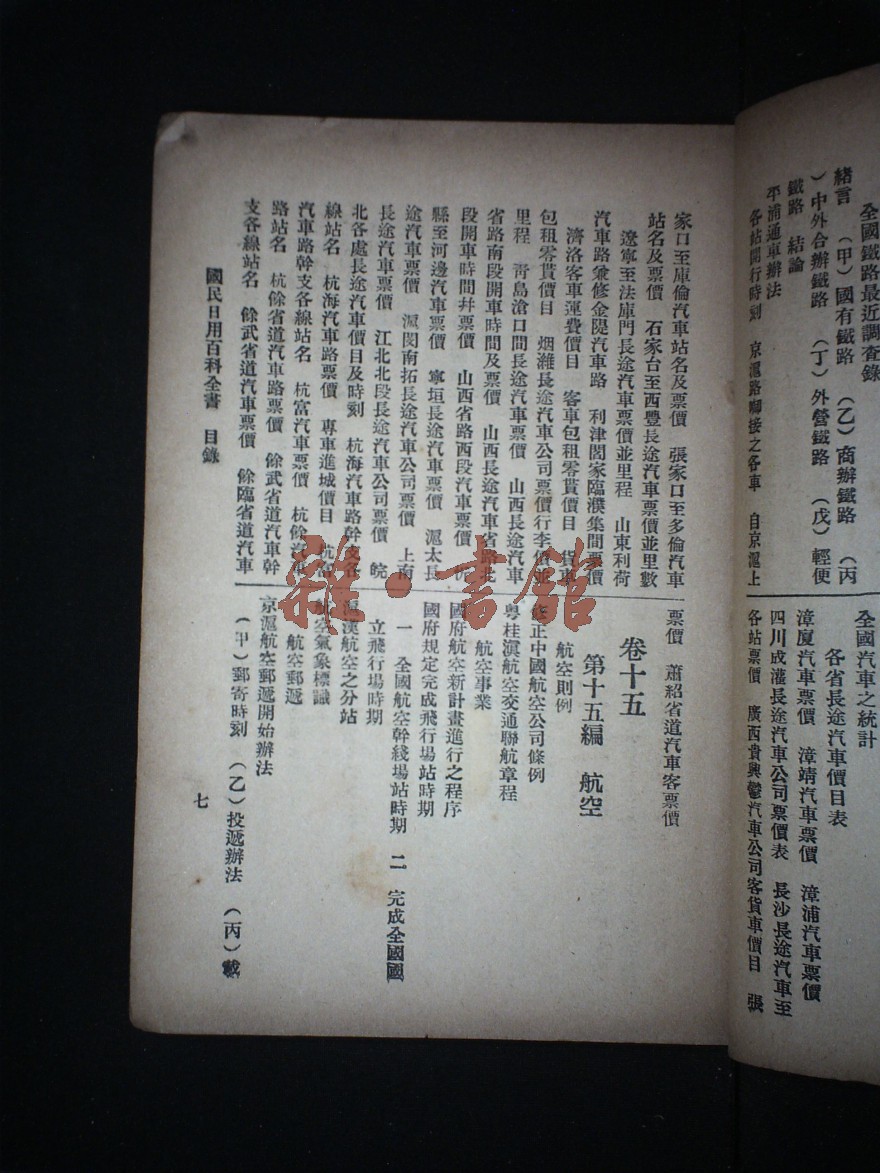 全國鐵路最近調查錄
緒言　(甲)國有鐵路　(乙)商辦鐵路　(丙
)中外合辦鐵路　(丁)外營鐵路　(戊)輕便
鐵路　結論
平浦通車辦法
各站開行時刻　京滬路啣接之各車　自京滬上
全國汽車之統計
各省長途汽車價目表
漳廈汽車票價　漳靖汽車票價　漳浦汽車票價
四川成灌長途汽車公司票價表　長沙長途汽車至
各站票價　廣西貴興鬱汽車公司客貨車價目　張
家口至庫倫汽車站名及票價　張家口至多倫汽車
站名及票價　石家台至西豐長途汽車票價並里數
遼寧至法庫門長途汽車票價並里程　山東利荷
汽車路兼修金隄汽車路　利津閻家臨濮集間票價
濟洛客車運費價目　客車包租零貰價目　貨車
包租零貰價目　烟濰長途汽車公司票價行李價並
里程　靑島滄口間長途汽車票價　山西長途汽車
省路南段開車時間及票價　山西長途汽車省路北
段開車時間幷票價　山西省路西段汽車票價
縣至河邊汽車票價　寧垣長途汽車票價　滬太長
途汽車票價　滬閔南拓長途汽車公司票價　上南
長途汽車票價　江北北段長途汽車公司票價　皖
北各處長途汽車價目及時刻　杭海汽車路幹支各
線站名　杭海汽車路票價　專車進城價目　杭富
汽車路幹支各線站名　杭富汽車票價　杭餘汽車
路站名　杭餘省道汽車票價　餘武省道汽車幹
支各線站名　餘武省道汽車票價　餘臨省道汽車
票價　蕭紹省道汽車客票價
卷十五
第十五編　航空
航空則例
修正中國航空公司條例
粵桂滇航空交通聯航章程
航空事業
國府航空新計畫進行之程序
國府規定完成飛行場站時期
一　全國航空幹綫場站時期　二　完成全國國
立飛行場時期
滬漢航空之分站
航空氣象標識
航空郵遞
京滬航空郵遞開始辦法
(甲)郵寄時刻　(乙)投遞辦法　(丙)
國民日用百科全書　目錄
七
雜·書館